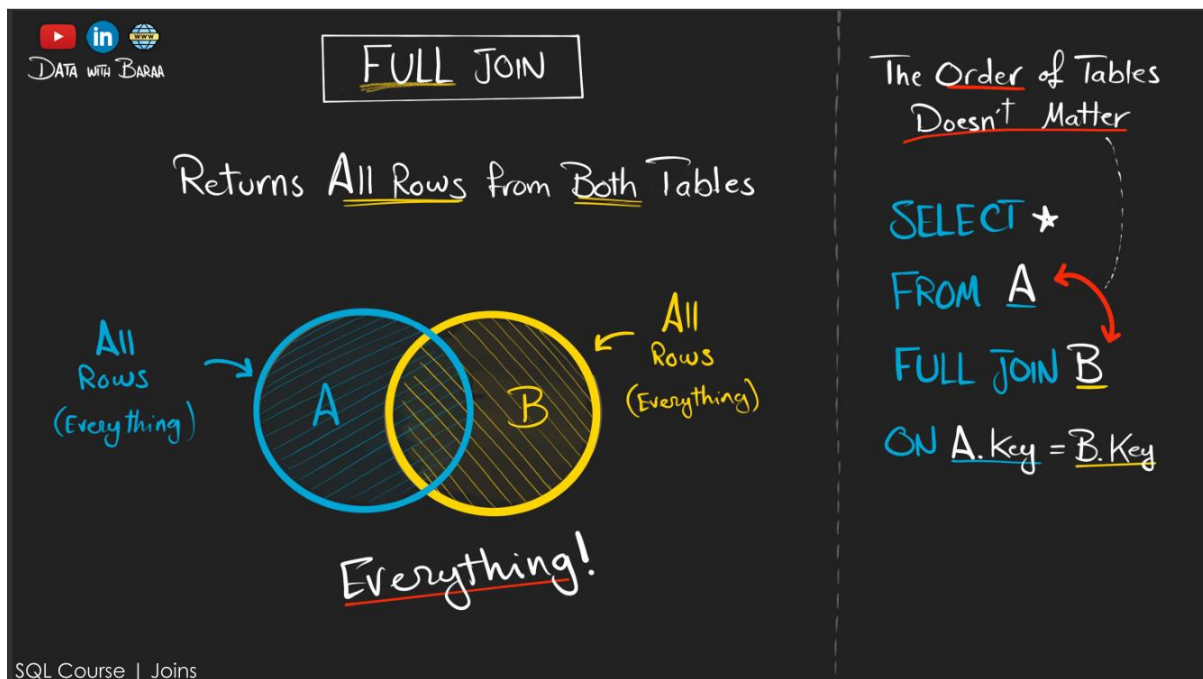 in
WWW
DATA WITH BARAA
FULL JOIN
Returns All Rows from Both Tables
All
Rows
(Everything)
A
B
All
Rows
(Everything)
Everything!
SQL Course | Joins
The Order of Tables
Doesn't Matter
SELECT *
FROM A
FULL JOIN B
ON A.Key = B.Key